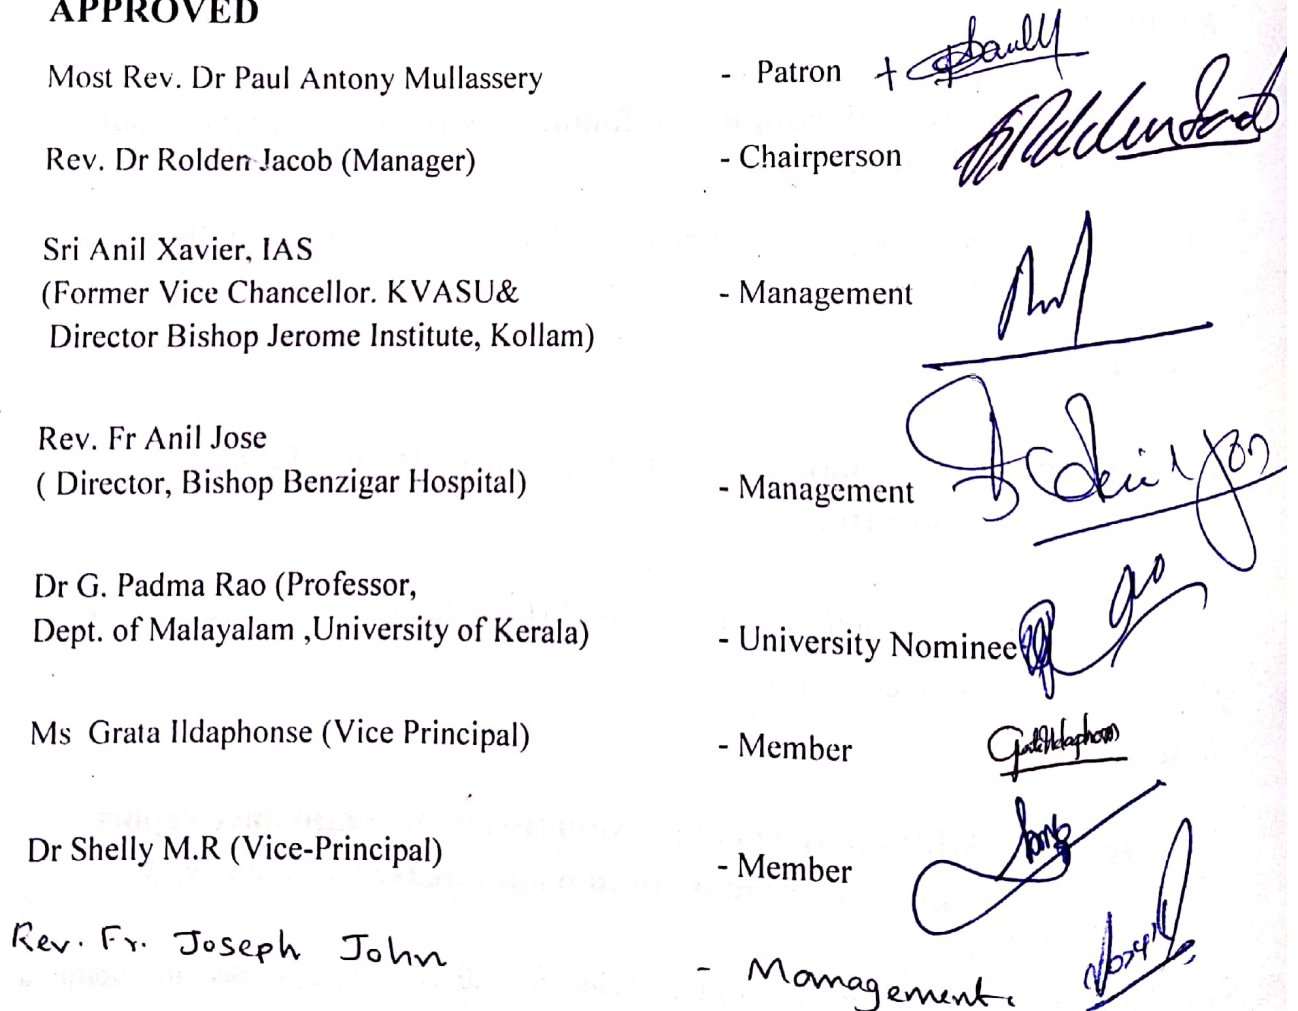 APPROVED
Most Rev. Dr Paul Antony Mullassery - Patron +
Rev. Dr Rolden Jacob (Manager) - Chairperson Rolden Jacob
Sri Anil Xavier, IAS
(Former Vice Chancellor. KVASU& - Management
Director Bishop Jerome Institute, Kollam)
Rev. Fr Anil Jose
( Director, Bishop Benzigar Hospital) - Management
Dr G. Padma Rao (Professor,
Dept. of Malayalam ,University of Kerala) - University Nominee
Ms Grata Ildaphonse (Vice Principal) - Member
Dr Shelly M.R (Vice-Principal) - Member
Rev. Fr. Joseph John - Management.